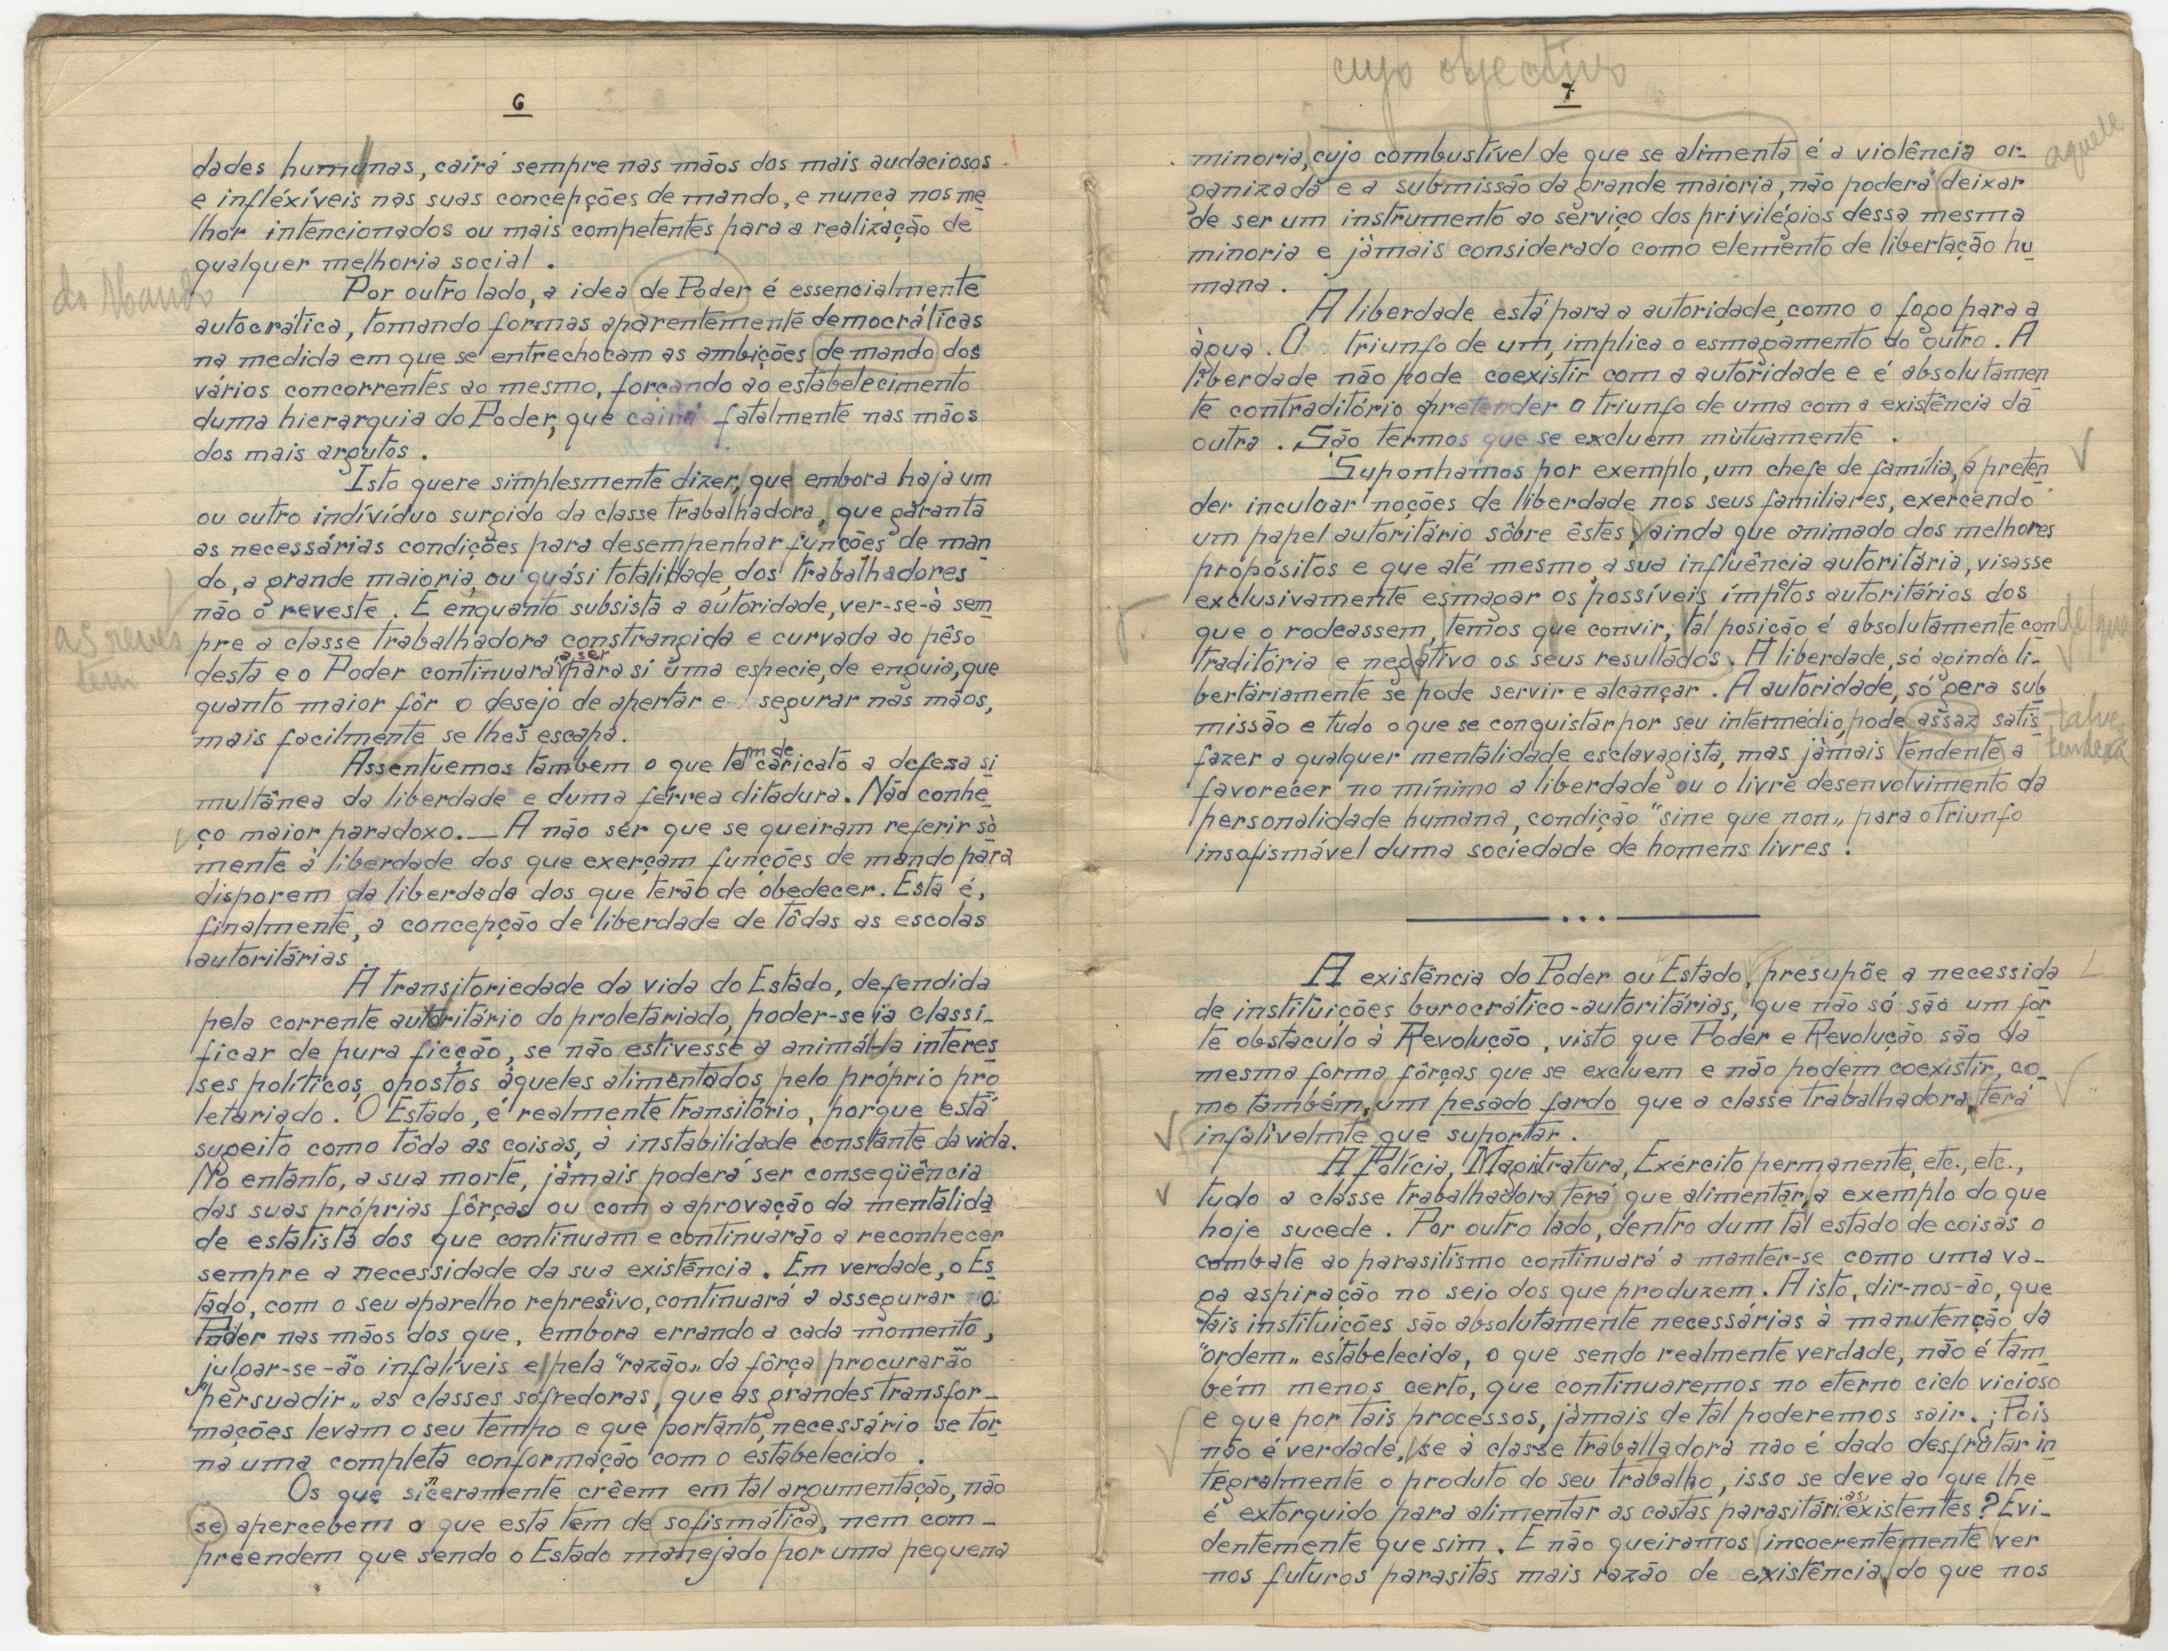 6
dades humanas, cairá sempre nas mãos dos mais audaciosos
e infléxíveis nas suas concepções de mando, e nunca nos me
lhor intencionados ou mais competentes para a realização de
qualquer melhoria social.
do Mando
Por outro lado, a idea de Poder é essencialmente
autocrática, tomando formas aparentemente democráticas
na medida em que se entrechocam as ambições de mando dos
vários concorrentes ao mesmo, forçando ao estabelecimento
duma hierarquia do Poder, que cairá fatalmente nas mãos
dos mais argutos.
Isto quere simplesmente dizer, que embora haja um
ou outro indivíduo surgido da classe trabalhadora, que garanta
as necessárias condições para desempenhar funções de man
do, a grande maioria, ou quási totalidade, dos trabalhadores
não o reveste. E enquanto subsista a autoridade, ver-se-à sem
as reves
tem
pre a classe trabalhadora constrangida e curvada ao pêso
desta e o Poder continuará a ser para si uma especie, de enguia, que
quanto maior fôr o desejo de apertar e segurar nas mãos,
mais facilmente se lhes escapa.
Assentuemos tambem o que tem de caricato a defesa si
multânea da liberdade e duma férrea ditadura. Não conhe
ço maior paradoxo. — A não ser que se queiram referir sò
mente à liberdade dos que exerçam funções de mando para
disporem da liberdade dos que terão de obedecer. Esta é,
finalmente, a concepção de liberdade de tôdas as escolas
autoritárias.
A transitoriedade da vida do Estado, defendida
pela corrente autoritário do proletariado, poder-se ia classi-
ficar de pura ficção, se não estivesse a animál-la interes
ses políticos, opostos áqueles alimentados pelo próprio pro
letariado. O Estado, é realmente transitório, porque está
sugeito como tôda as coisas, à instabilidade constante da vida.
No entanto, a sua morte, jàmais poderá ser conseqüência
das suas próprias fôrças ou com a aprovação da mentalida
de estatista dos que continuam e continuarão a reconhecer
sempre a necessidade da sua existência. Em verdade, o Es
tado, com o seu aparelho represivo, continuará a assegurar o
Poder nas mãos dos que, embora errando a cada momento,
julgar-se-ão infalíveis e pela "razão" da fôrça procurarão
"persuadir" as classes sofredoras, que as grandes transfor-
mações levam o seu tempo e que portanto, necessário se tor
na uma completa conformação com o estabelecido.
Os que sinceramente crêem em tal argumentação, não
se apercebem o que esta tem de sofismática, nem com-
preendem que sendo o Estado manejado por uma pequena
cujo objectivo
7
minoria, cujo combustível de que se alimenta é a violência or-
aquele
ganizada e a submissão da grande maioria, não poderá deixar
de ser um instrumento ao serviço dos privilégios dessa mesma
minoria e jàmais considerado como elemento de libertação hu
mana.
A liberdade está para a autoridade, como o fogo para a
àgua. O triunfo de um, implica o esmagamento do outro. A
liberdade não pode coexistir com a autoridade e é absolutamen
te contraditório pretender o triunfo de uma com a existência da
outra. São termos que se excluem mùtuamente.
Suponhamos por exemplo, um chefe de família, a preten
der inculcar noções de liberdade nos seus familiares, exercendo
um papel autoritário sôbre êstes, ainda que animado dos melhores
propósitos e que até mesmo, a sua influência autoritária, visasse
exclusivamente esmagar os possíveis ímpitos autoritários dos
que o rodeassem, temos que convir, tal posição é absolutamente con
de que
traditória e negativo os seus resultados. A liberdade, só agindo li-
bertàriamente se pode servir e alcançar. A autoridade, só gera sub
missão e tudo o que se conquistar por seu intermédio, pode assaz satis
talvez
fazer a qualquer mentalidade esclavagista, mas jàmais tendente a
favorecer no mínimo a liberdade ou o livre desenvolvimento da
personalidade humana, condição "sine que non" para o triunfo
insofismável duma sociedade de homens livres.
A existência do Poder ou Estado, presupõe a necessida
de instituições burocrático-autoritárias, que não só são um fòr
te obstáculo à Revolução, visto que Poder e Revolução são da
mesma forma fôrças que se excluem e não podem coexistir, co-
mo também, um pesado fardo que a classe trabalhadora, terá
infalivelmte que suportar.
A Polícia, Magistratura, Exército permanente, etc., etc.,
tudo a classe trabalhadora terá que alimentar, a exemplo do que
hoje sucede. Por outro lado, dentro dum tal estado de coisas o
combate ao parasitismo continuará a manter-se como uma va-
ga aspiração no seio dos que produzem. A isto, dir-nos-ão, que
tais instituições são absolutamente necessárias à manutenção da
"ordem" estabelecida, o que sendo realmente verdade, não é tam
bém menos certo, que continuaremos no eterno ciclo vicioso
e que por tais processos, jàmais de tal poderemos sair. ¿Pois
não é verdade, se à classe traballadora não é dado desfrutar in
tegralmente o produto do seu trabalho, isso se deve ao que lhe
é extorquido para alimentar as castas parasitárias existentes? Evi-
dentemente que sim. E não queiramos incoerentemente ver
nos futuros parasitas mais razão de existência, do que nos